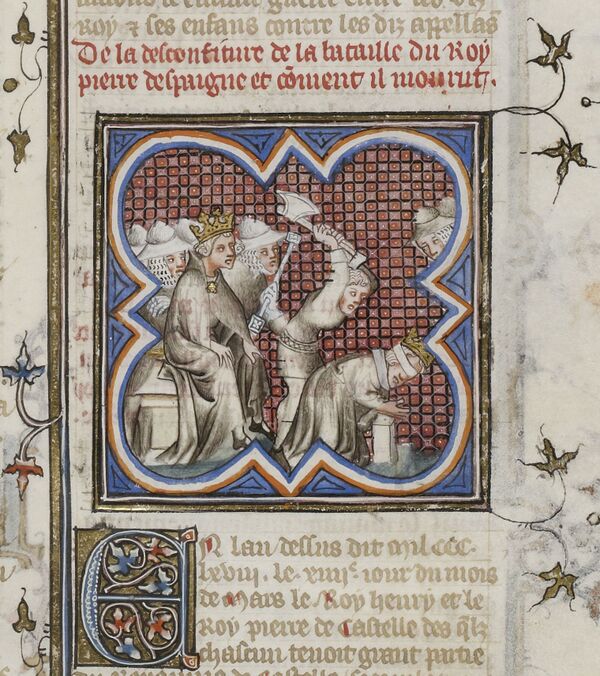 roy ⁊ ses enfans contre les diz appellas
De la desconfiture de la bataille du Roy
pierre despaigne et cõment il mourut.
En lan dessus dit mil CCC.
lxviii. le xiiiᵉ iour du mois
de Mars le Roy henry et le
Roy pierre de Castelle des qͥlz
chascun tenoit grant partie